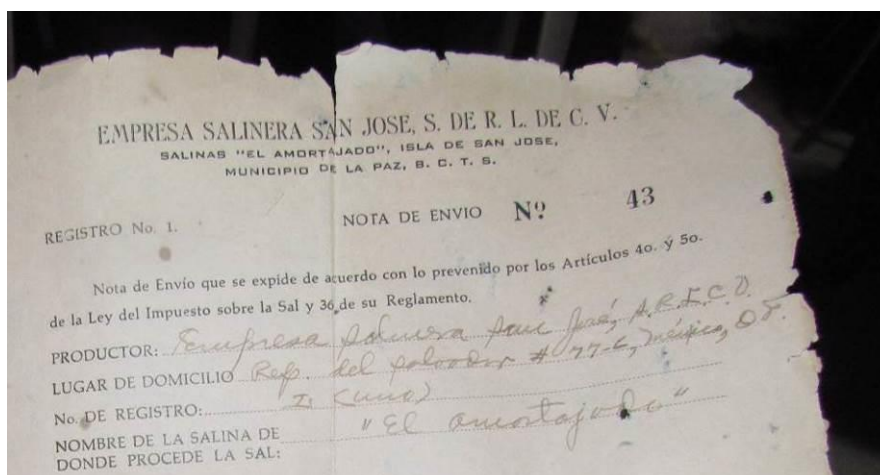 EMPRESA SALINERA SAN JOSE, S. DE R. L. DE C. V.
SALINAS "EL AMORTAJADO", ISLA DE SAN JOSE,
MUNICIPIO DE LA PAZ, B. C. T. S.
REGISTRO No. 1. NOTA DE ENVIO Nº 43
Nota de Envío que se expide de acuerdo con lo prevenido por los Artículos 4o. y 5o.
de la Ley del Impuesto sobre la Sal y 36 de su Reglamento.
PRODUCTOR: Empresa Salinera San José,
LUGAR DE DOMICILIO Rep. del Salvador # 77-6, México, D.F.
No. DE REGISTRO: 1 (uno)
NOMBRE DE LA SALINA DE "El amortajado"
DONDE PROCEDE LA SAL: